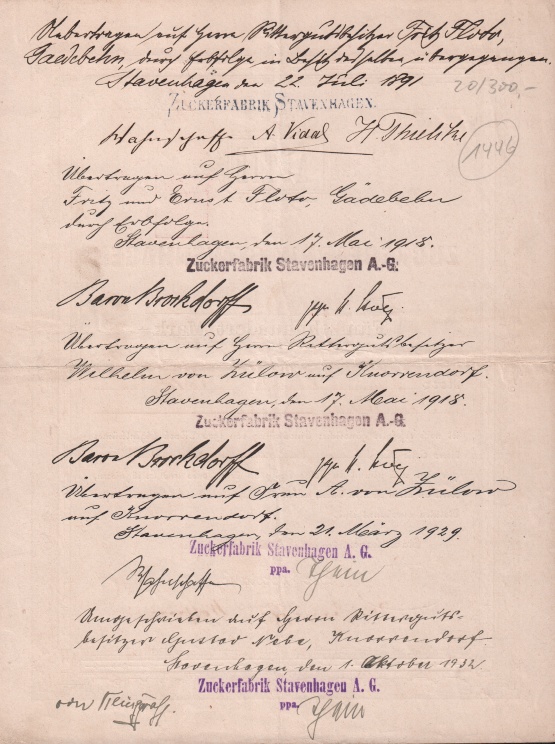 Uebertragen auf Herrn Rittergutsbesitzer Fritz Floto,
Gaedebehn, durch Erbfolge in Besitz desselben übergegangen.
Stavenhagen den 22. Juli 1891
20/300,-
ZUCKERFABRIK STAVENHAGEN.
Wahnschaffe A. Vidal H Thielike
1446
Übertragen auf Herrn
Fritz und Ernst Floto, Gädebehn
durch Erbfolge.
Stavenhagen, den 17. Mai 1918.
Zuckerfabrik Stavenhagen A.-G.
Baron Brockdorff ppa
Übertragen auf Herrn Rittergutsbesitzer
Wilhelm von Zülow auf Knorrendorf.
Stavenhagen, den 17. Mai 1918.
Zuckerfabrik Stavenhagen A.-G.
Baron Brockdorff ppa
Übertragen auf Frau A. von Zülow
auf Knorrendorf.
Stavenhagen, den 21. März 1929.
Zuckerfabrik Stavenhagen A. G.
ppa.
Wahnschaffe
Umgeschrieben auf Herrn Ritterguts-
besitzer Gustav Nebe, Knorrendorf
Stavenhagen, den 1. Oktober 1932
Zuckerfabrik Stavenhagen A. G.
von
ppa.